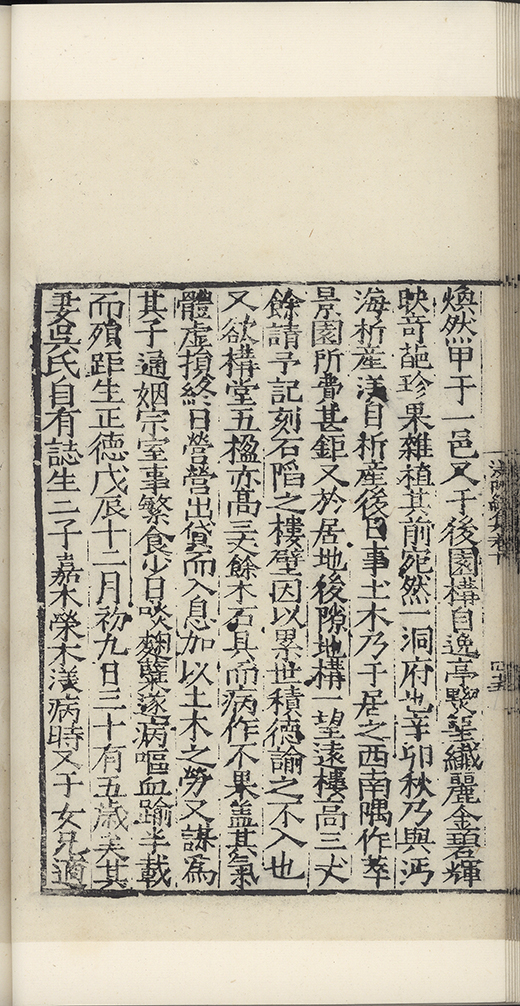 煥然甲于一邑又于後園構自逸亭㸃堊纎麗金碧輝
映竒葩珍果雜植其前宛然一洞府也辛卯秋乃與沔
海析産渼自析産後日事土木乃于居之西南隅作萃
景園所費甚鉅又於居地後隙地構一望遠樓高三丈
餘請予記刻石䧟之樓壁因以累世積德諭之不入也
又欲構堂五楹亦高三丈餘木石具而病作不果盖其氣
體虚損終日營營出貸而入息加以土木之勞又謀爲
其子通姻宗室事繁食少日啖麯糵遂病嘔血踰半載
而殞距生正德戊辰十二月初九日三十有五歲矣其
妻吳氏自有誌生二子嘉木榮木渼病時又于女兄適